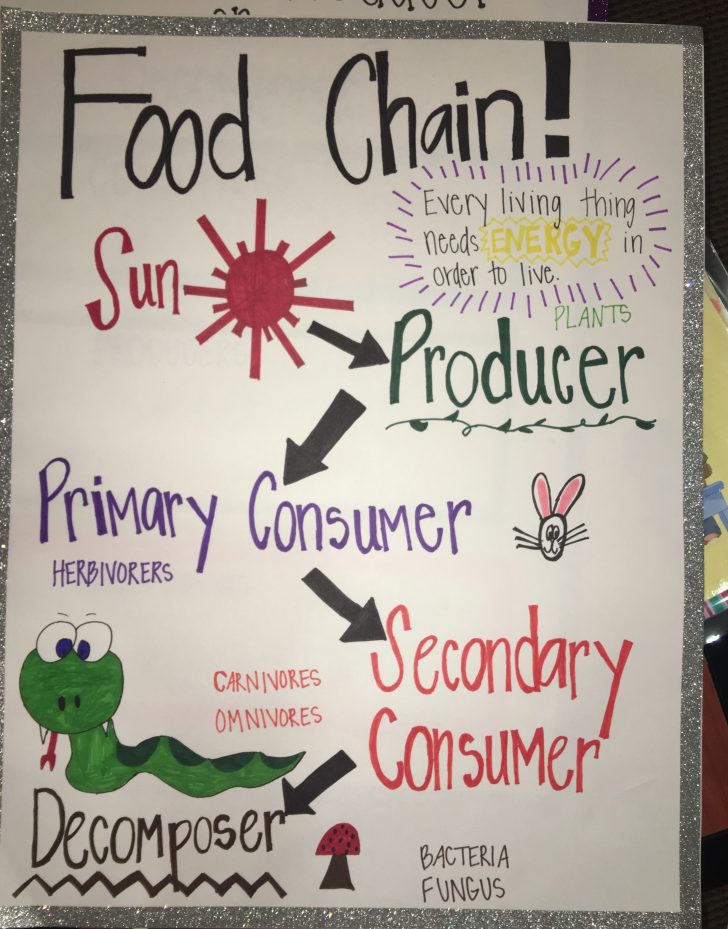 Food Chain!
Every living thing
needs ENERGY in
order to live.
Sun
PLANTS
Producer
Primary Consumer
HERBIVORERS
Secondary
Consumer
CARNIVORES
OMNIVORES
Decomposer
BACTERIA
FUNGUS